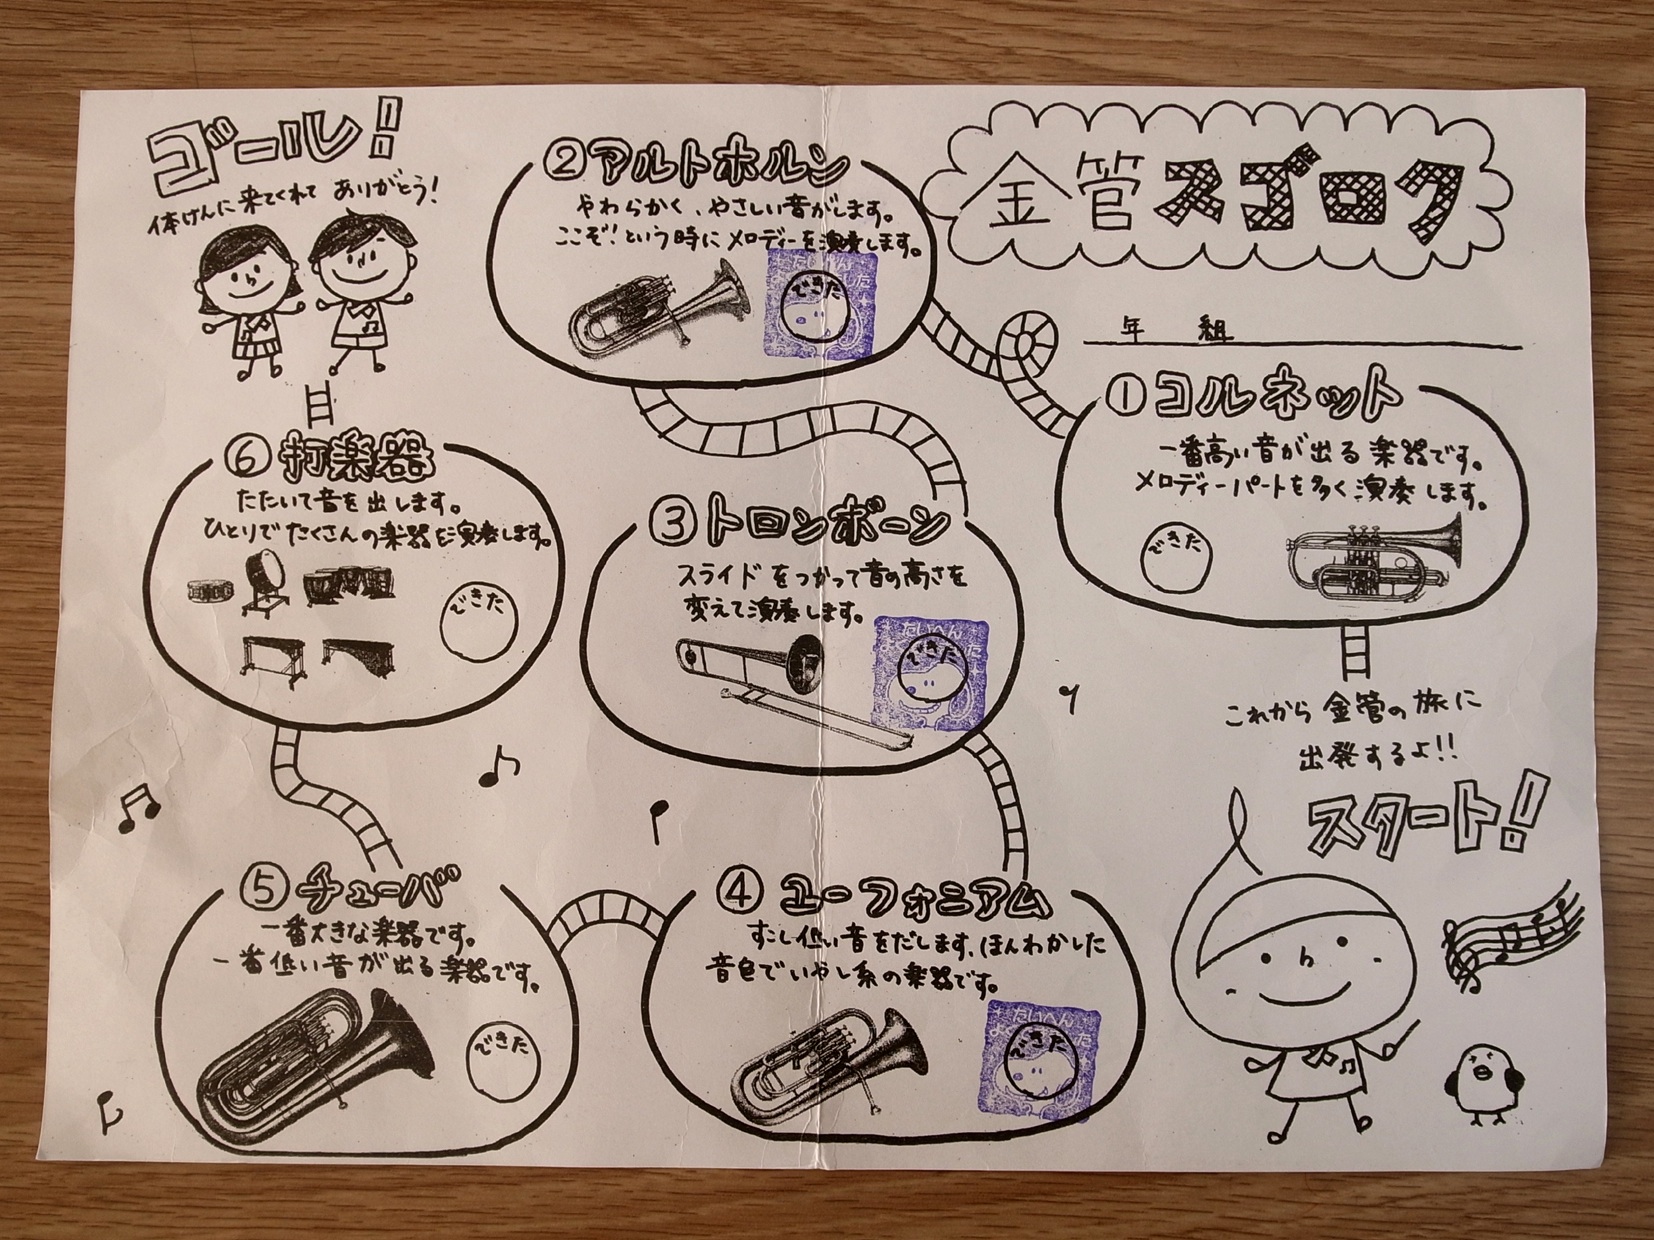 金管スゴロク
年 組
スタート!
これから金管の旅に
出発するよ!!
①コルネット
一番高い音が出る楽器です。
メロディーパートを多く演奏します。
できた
②アルトホルン
やわらかく、やさしい音がします。
ここぞ!という時にメロディーを演奏します。
たいへん
できた
③トロンボーン
スライドをつかって音の高さを
変えて演奏します。
たいへん
できた
④ユーフォニアム
すこし低い音をだします、ほんわかした
音色でいやし系の楽器です。
たいへん
できた
⑤チューバ
一番大きな楽器です。
一番低い音が出る楽器です。
できた
⑥打楽器
たたいて音を出します。
ひとりでたくさんの楽器を演奏します。
できた
ゴール!
体けんに来てくれて ありがとう!